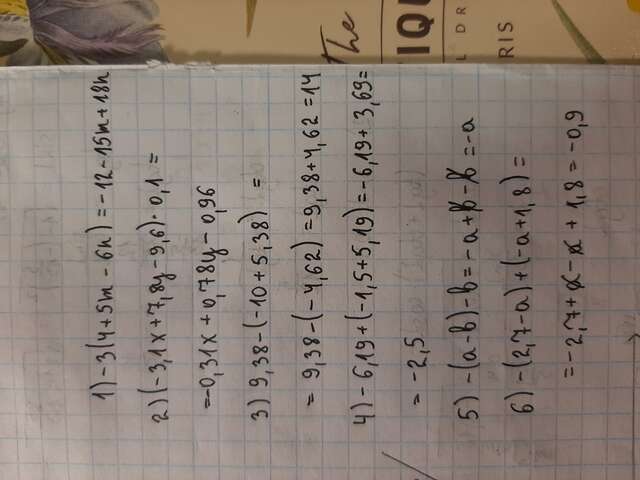 the
IQU
L DR
RIS
1) -3(4+5m-6n)=-12-15m+18n
2)(-3,1x+7,8y-9,6)·0,1=
=-0,31x+0,78y-0,96
3) 9,38-(-10+5,38) =
= 9,38-(-4,62)=9,38+4,62=14
4)-6,19+(-1,5+5,19)=-6,19+3,69=
=-2,5
5) -(a-b)-b=-a+b-b=-a
6) -(2,7-a)+(-a+1,8)=
=-2,7+a-a+1,8=-0,9